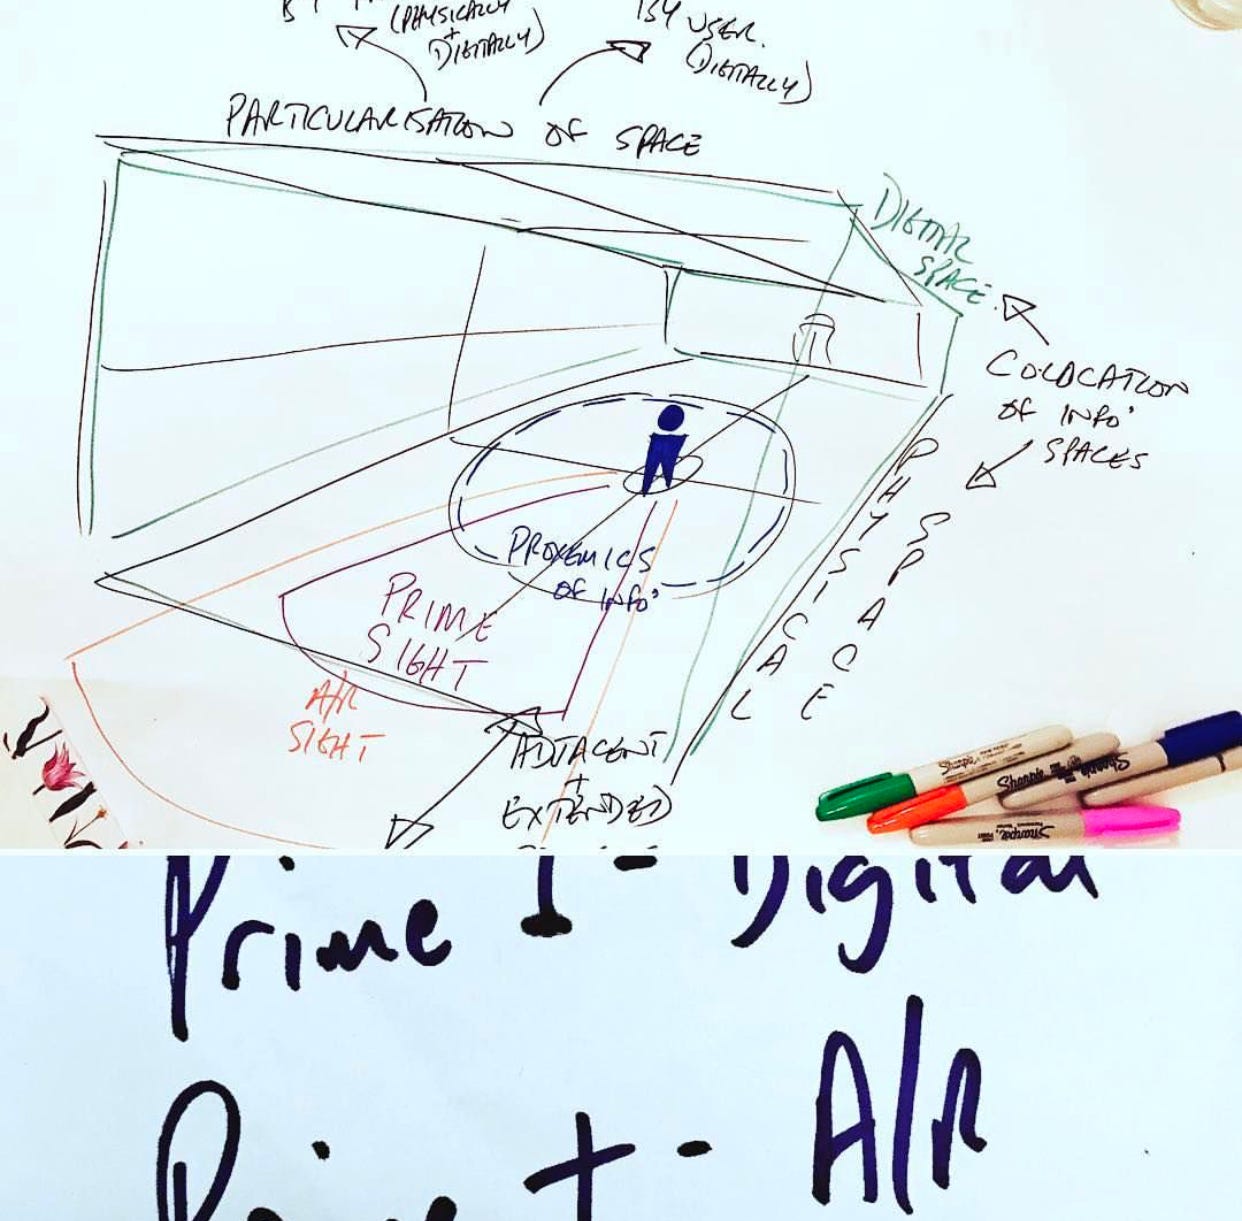 (PHYSICALLY
+
DIGITALLY)
BY USER.
(DIGITALLY)
PARTICULARISATION OF SPACE
DIGITAL
SPACE.
COLOCATION
OF INFO'
SPACES
PHYSICAL
SPACE
PROXEMICS
OF INFO'
PRIME
SIGHT
A/R
SIGHT
ADJACENT
+
EXTENDED
Sharpie
Sharpie
Sharpie
Sharpie
Prime I - Digital
Prime + - A/R